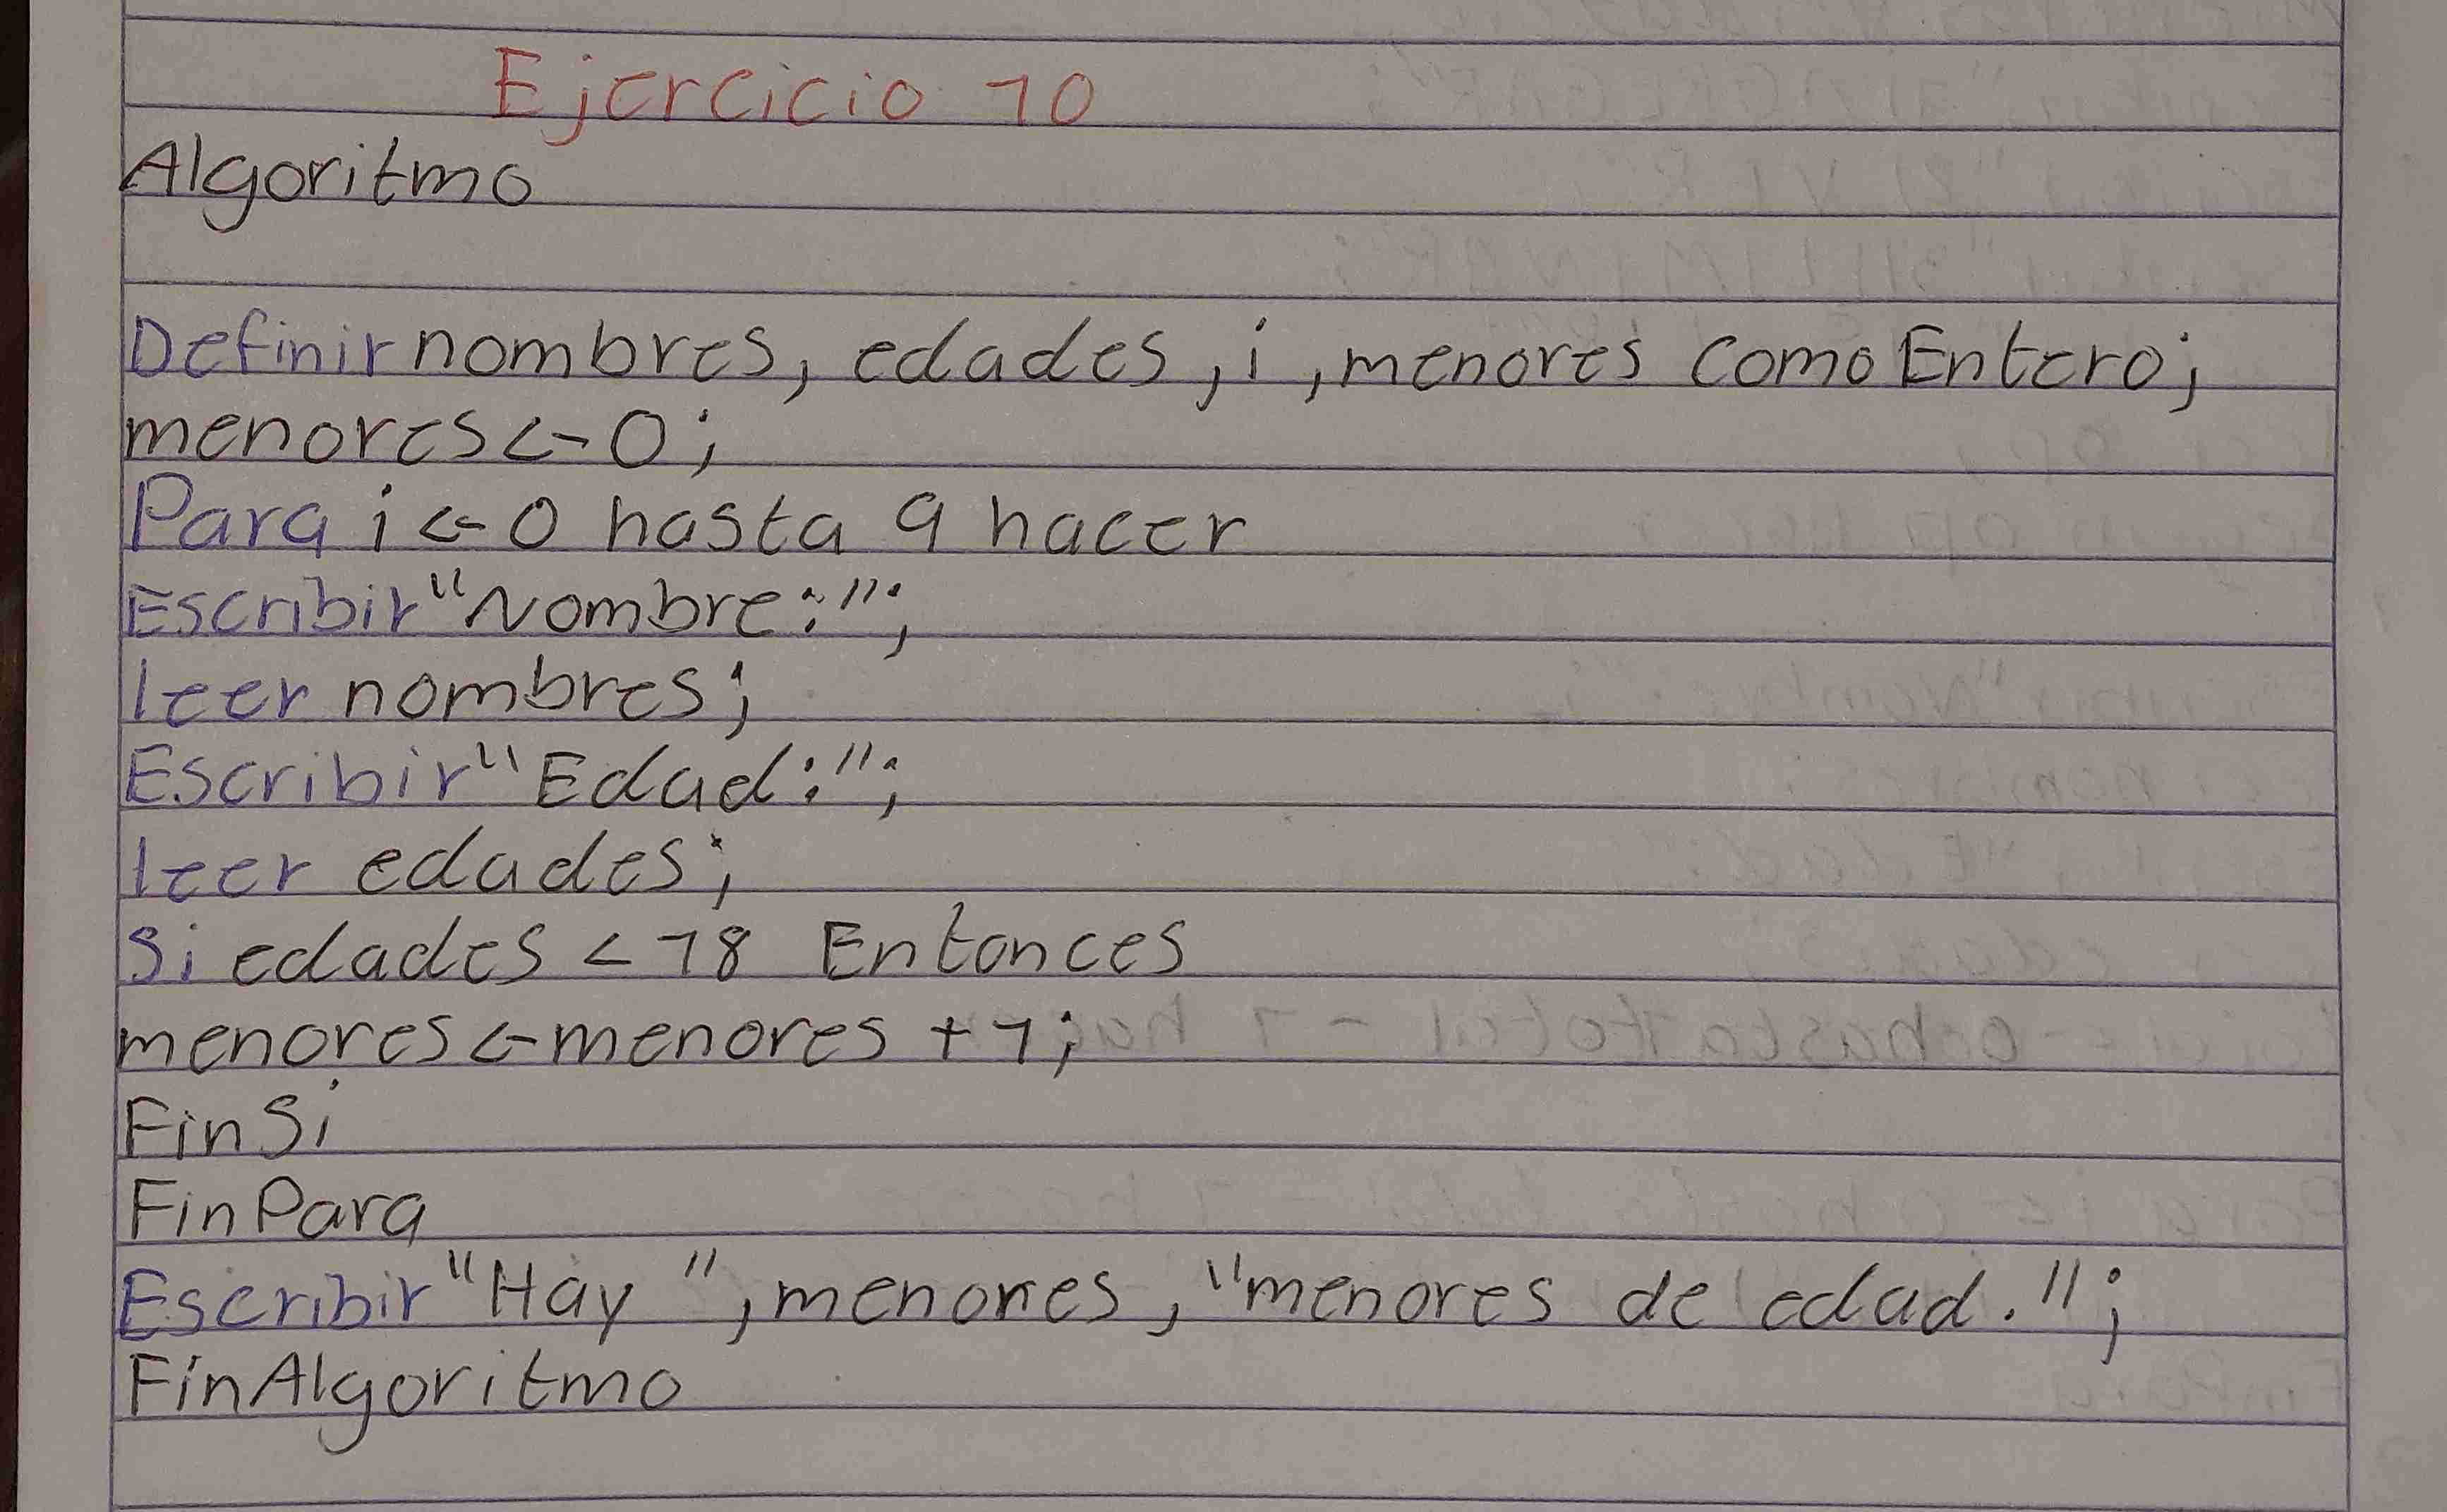 Ejercicio 10
Algoritmo
Definir nombres, edades, i, menores como Entero;
menores <- 0;
Para i <- 0 hasta 9 hacer
Escribir "Nombre:";
leer nombres;
Escribir "Edad:";
leer edades;
Si edades < 18 Entonces
menores <- menores + 1;
FinSi
FinPara
Escribir "Hay ", menores, "menores de edad.";
FinAlgoritmo